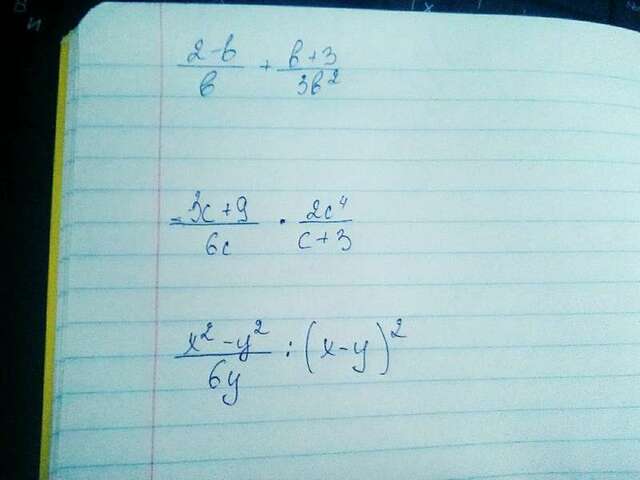 (2-b)/b + (b+3)/(3b²)
(3c+9)/(6c) · (2c⁴)/(c+3)
(x²-y²)/(6y) : (x-y)²